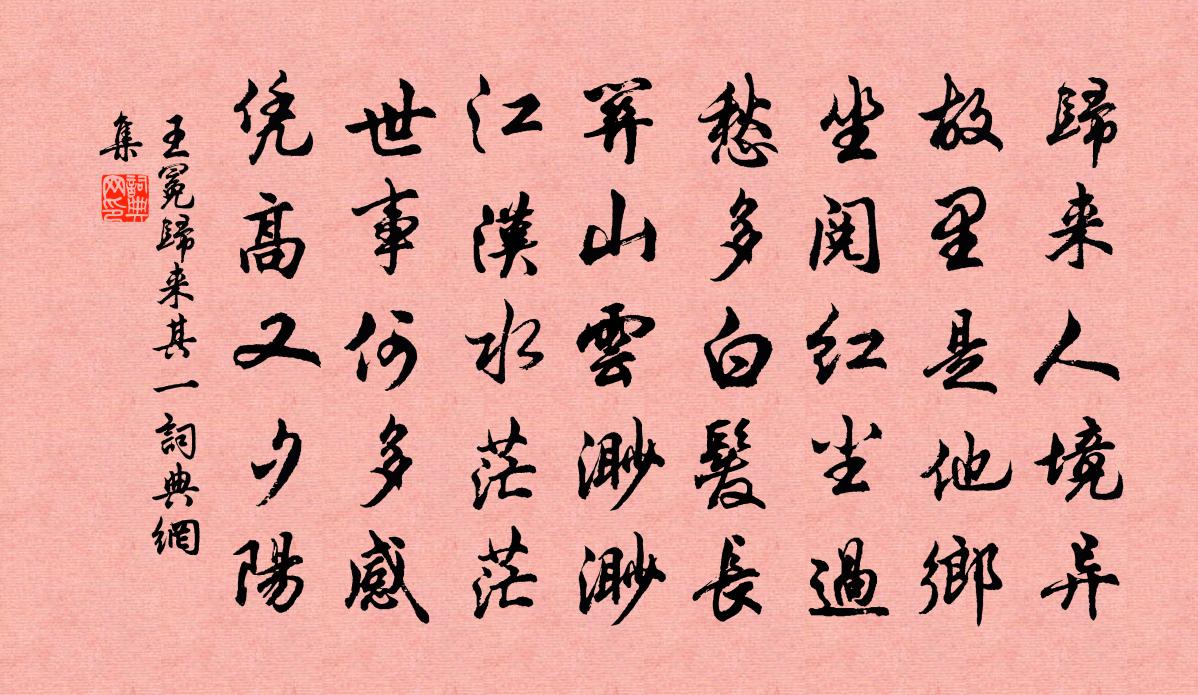 歸来人境异
故里是他鄉
坐閱红尘過
愁多白髮長
荆山雲渺渺
江漢水茫茫
世事何多感
凭高又夕陽
王冕歸来其一詞典網
集
詞典网印